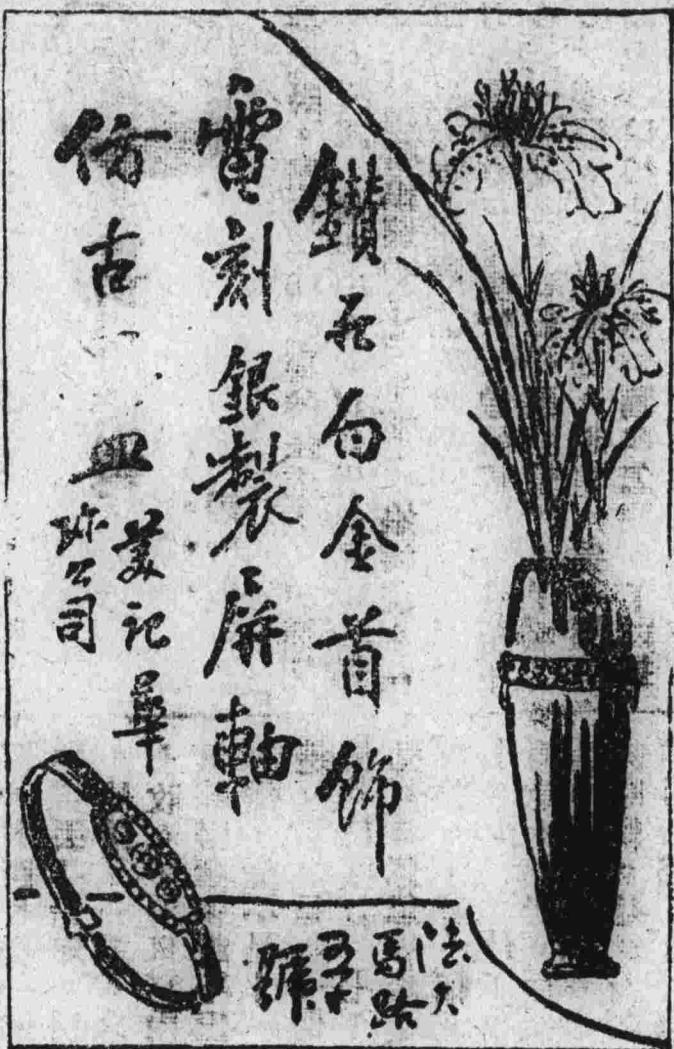 鑽石白金首飾
電刻銀製屏軸
仿古　皿
美記華
琺公司
法大
馬路
號